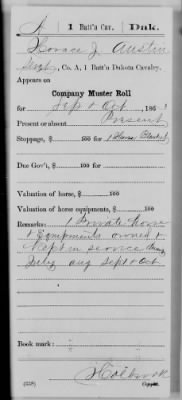 A | 1 Batt'n Cav. | Dak.
Horace J. Austin
Sergt, Co. A, 1 Batt'n Dakota Cavalry.
Appears on
Company Muster Roll
for Sept & Oct, 186
Present or absent Present
Stoppage, $ 100 for 1 Horse
Due Gov't, $ 100 for
Valuation of horse, $ 100
Valuation of horse equipments, $ 100
Remarks: 1 Private horse
& Equipments owned &
Kept in service during
July Aug Sept & Oct
Book mark:
Holbrook
(358) Copyist.